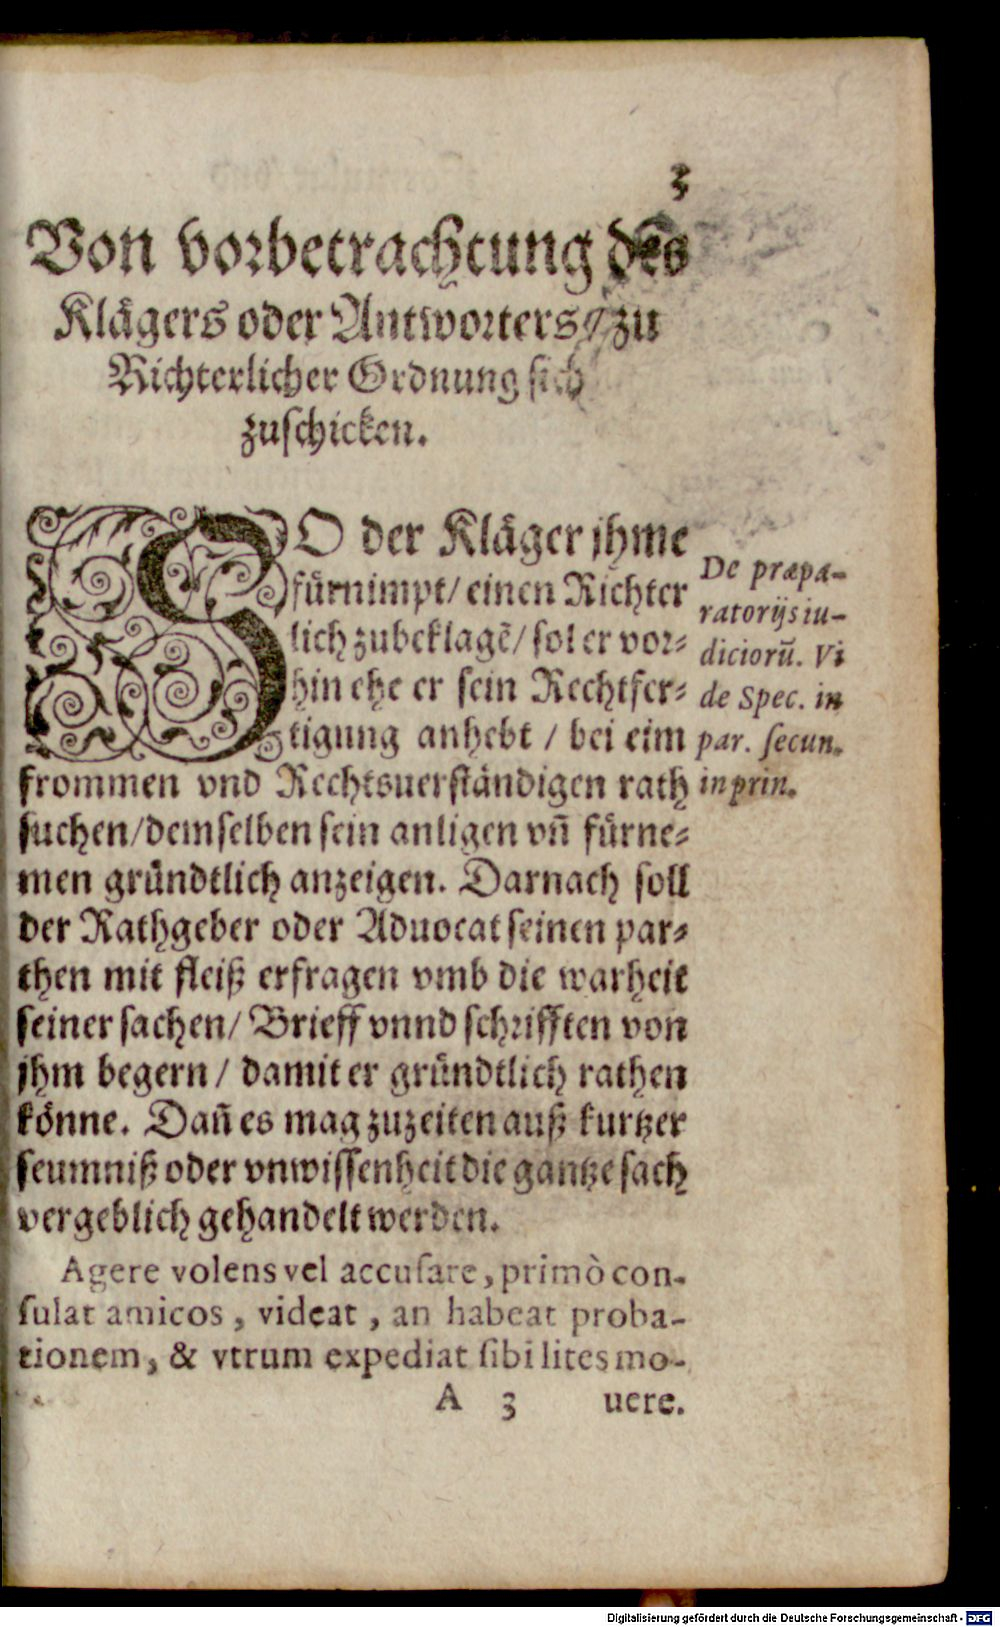 3
Von vorbetrachtung des
Klägers oder Antworters / zu
Richterlicher Ordnung sich
zuschicken.
SO der Kläger jhme
fürnimpt / einen Richter
lich zubeklagē / sol er vor⸗
hin ehe er sein Rechtfer⸗
tigung anhebt / bei eim
frommen vnd Rechtsuerständigen rath
suchen / demselben sein anligen vñ fürne⸗
men gründtlich anzeigen. Darnach soll
der Rathgeber oder Aduocat seinen par⸗
then mit fleiß erfragen vmb die warheit
seiner sachen / Brieff vnnd schrifften von
jhm begern / damit er gründtlich rathen
könne. Dañ es mag zuzeiten auß kurtzer
seumniß oder vnwissenheit die gantze sach
vergeblich gehandelt werden.
De præpa-
ratorijs iu-
diciorũ. Vi
de Spec. in
par. secun.
in prin.
Agere volens vel accusare, primò con-
sulat amicos, videat, an habeat proba-
tionem, & vtrum expediat sibi lites mo-
A 3 uere.
Digitalisierung gefördert durch die Deutsche Forschungsgemeinschaft - DFG